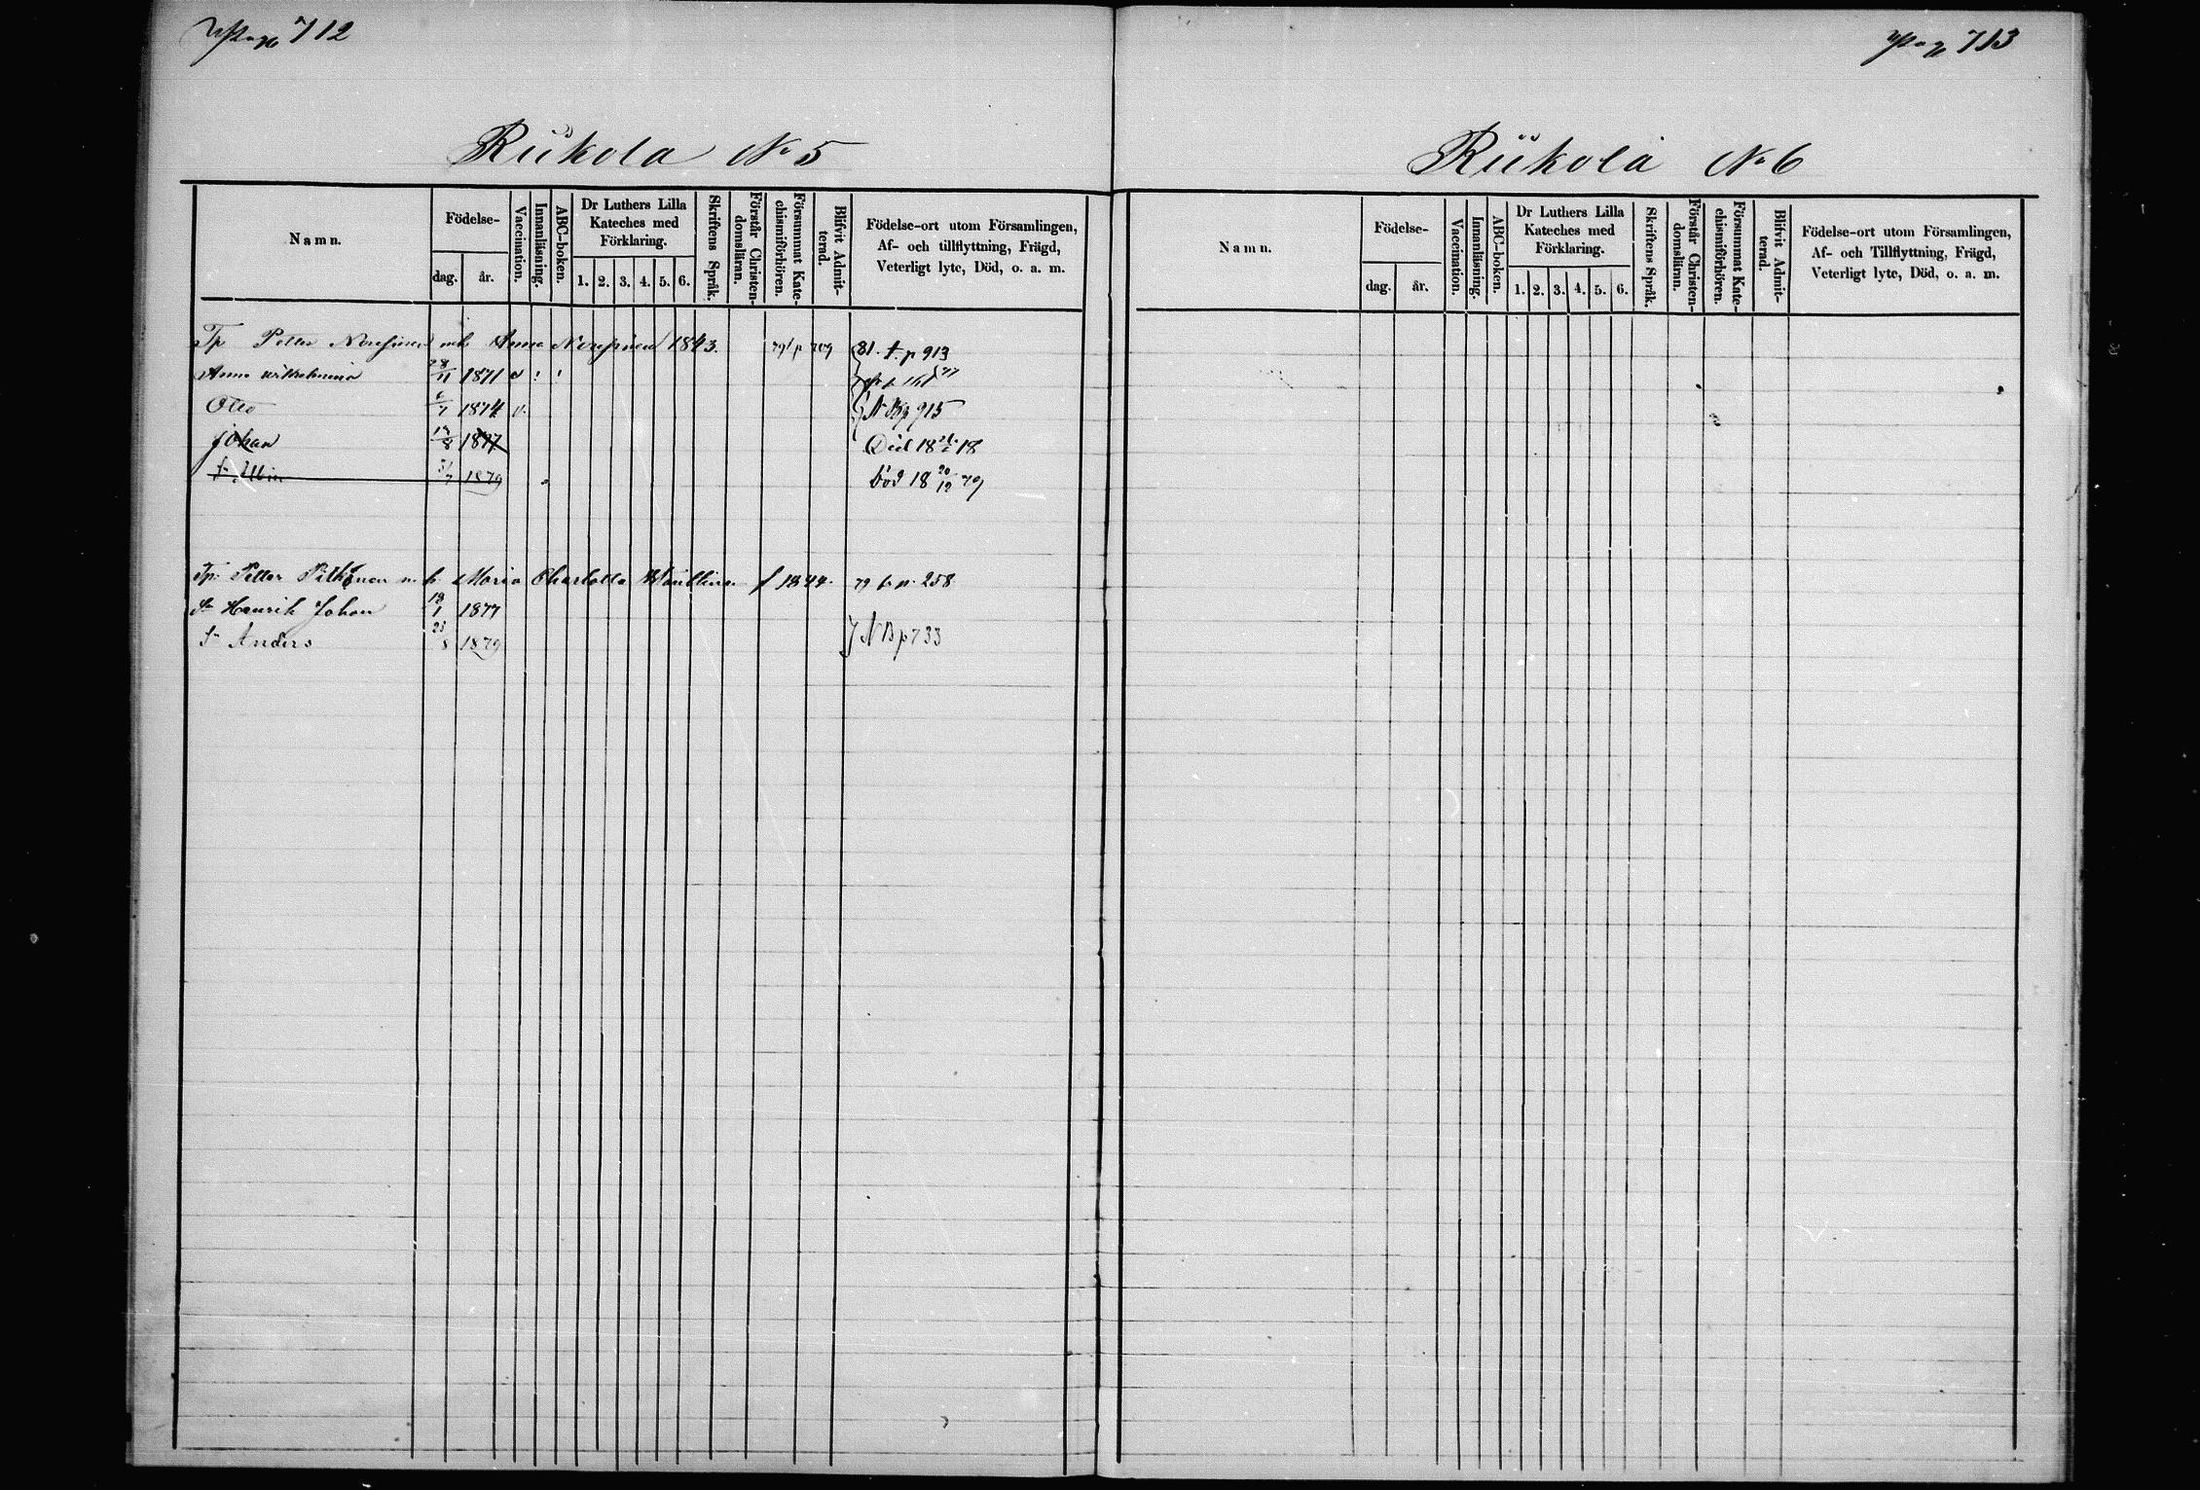 Pag 712
Riikola No 5
Namn.
Födelse-
dag.
år.
Vaccination.
Innanläsning.
ABC-boken.
Dr Luthers Lilla
Kateches med
Förklaring.
1. 2. 3. 4. 5. 6.
Skriftens Språk.
Förstår Christen-
domsläran.
Försummat Kate-
chismiförhören.
Blifvit Admit-
terad.
Födelse-ort utom Församlingen,
Af- och tillflyttning, Frägd,
Veterligt lyte, Död, o. a. m.
Tp Petter m h Anna 1843. 81. f. p 913
Anna Wilhelmina 28/11 1871
Otto 6/7 1874 v. N B p 915
Johan 14/8 1877 Död 18
S. Albin 5/7 1879 Död 18 20/12 79
Tp Petter Pitkänen m h Maria Charlotta f 1844. 79 f. p. 258
S. Henrik Johan 18/1 1877
S. Anders 23/8 1879 N B p 733
Pag 713
Riikola No 6
Namn.
Födelse-
dag.
år.
Vaccination.
Innanläsning.
ABC-boken.
Dr Luthers Lilla
Kateches med
Förklaring.
1. 2. 3. 4. 5. 6.
Skriftens Språk.
Förstår Christen-
domsläran.
Försummat Kate-
chismiförhören.
Blifvit Admit-
terad.
Födelse-ort utom Församlingen,
Af- och Tillflyttning, Frägd,
Veterligt lyte, Död, o. a. m.